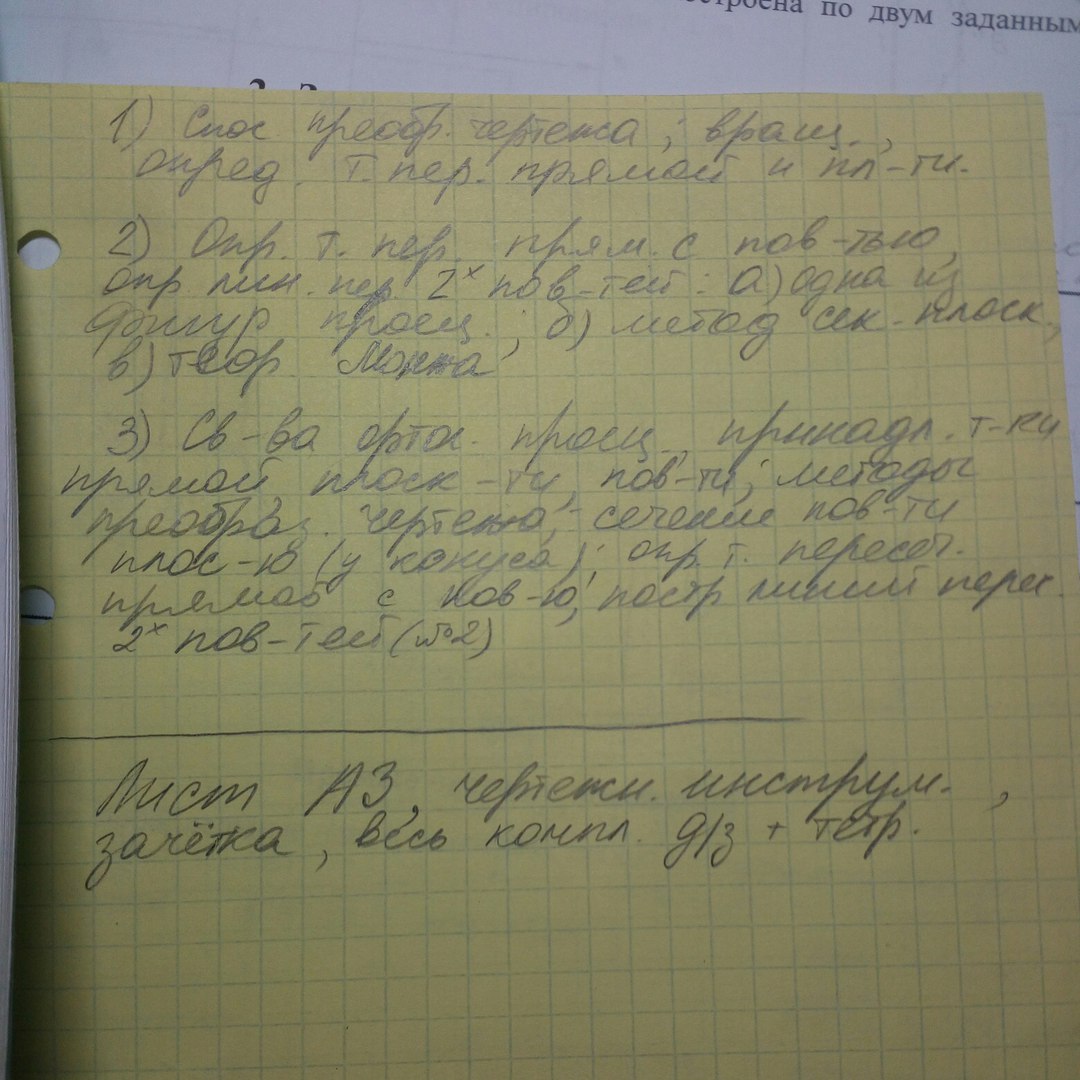 по двум заданным
1) Спос преобр. чертежа; вращ.,
опред. т. пер. прямой и пл-ти.
2) Опр. т. пер. прям. с пов-тью,
опр лин. пер. 2х пов-тей: а) одна из
фигур проец.; б) метод сек. плоск.,
в) теор. Монжа
3) Св-ва ортог. проец., принадл. т-ки
прямой, плоск-ти, пов-ти; методы
преобраз. чертежа; сечение пов-ти
плос-ю (у конуса); опр. т. пересеч.
прямой с пов-ю; постр линий перес.
2х пов-тей (№2)
Лист А3, чертежн. инструм.,
зачётка, весь компл. д/з + тетр.